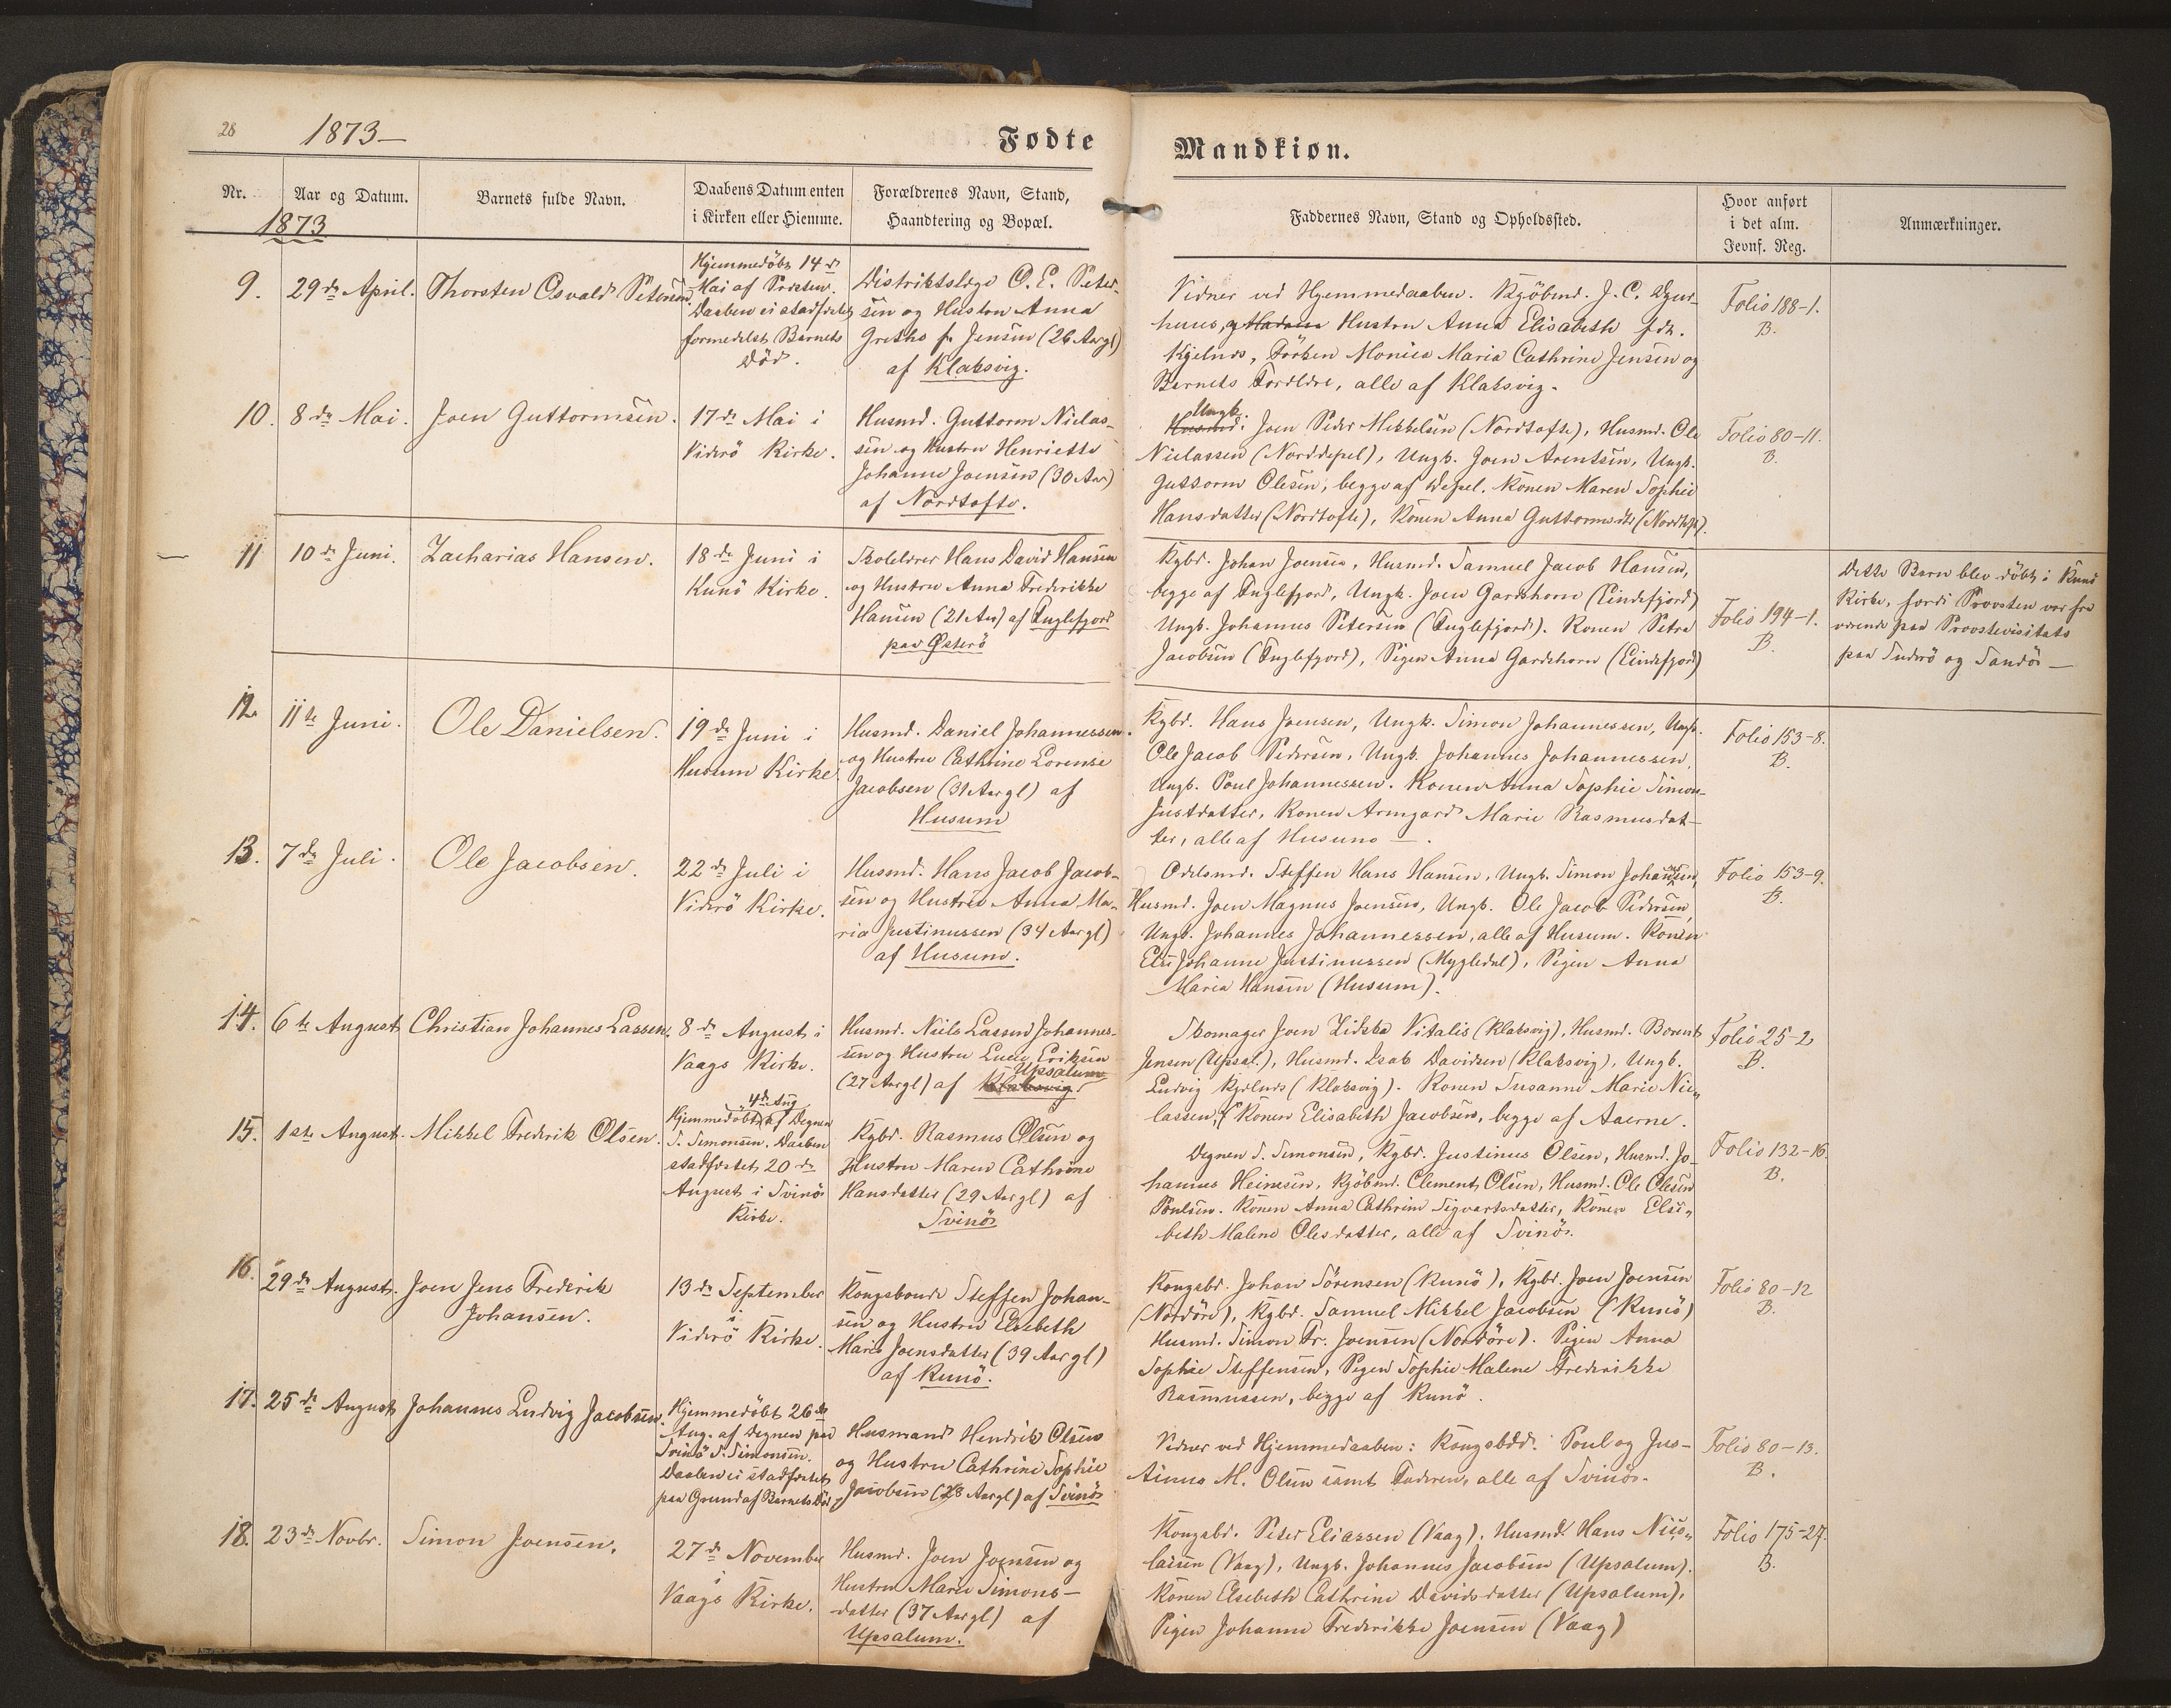 28
1873—
Fødte
Mandkiøn.
Nr.
Aar og Datum.
Barnets fulde Navn.
Daabens Datum enten
i Kirken eller Hiemme.
Forældrenes Navn, Stand,
Haandtering og Bopæl.
Faddernes Navn, Stand og Opholdssted.
Hvor anført
i det alm.
Jevnf. Reg.
Anmærkninger.
1873
9.
29de April.
Thorsten Osvald Petersen.
Hjemmedöbt 14de
Mai af Præsten.
Daaben ei stadfæstet
formedelst Barnets
Död.
Distriktslæge O. E. Peter-
sen og Hustru Anna
Grethe f. Jensen (26 Aar gl)
af Klaksvig.
Vidner ved Hjemmedaaben. Kjöbmd. J. C. Djur-
huus, og Hustru Anna Elisabeth föd.
Kjelnæs, Fröken Monica Maria Cathrine Jensen og
Barnets Forældre, alle af Klaksvig.
Folio 188-1.
B.
10.
8de Mai.
Joen Guttormsen.
17de Mai i
Viderö Kirke.
Husmd. Guttorm Niclas-
sen og Hustru Henriette
Johanne Joensen (30 Aar)
af Nordtofte.
Ungk.
Husmd. Joen Peder Mikkelsen (Nordtofte), Husmd. Ole
Niclassen (Norddepel), Ungk. Joen Arentsen, Ungk.
Guttorm Olesen, begge af Depel. Konen Maren Sophie
Hansdatter (Nordtofte), Konen Anna Guttormsdtr (Nordtoft).
Folio 80-11.
B.
11
10de Juni.
Zacharias Hansen.
18de Juni i
Kunö Kirke.
Skolelærer Hans David Hansen
og Hustru Anna Frederikke
Hansen (21 Aar) af Fuglefjord
paa Österö
Kgbd. Johan Joensen, Husmd. Samuel Jacob Hansen,
begge af Fuglefjord, Ungk. Joen Gardshorn (Lindefjord)
Ungk. Johannes Petersen (Fuglefjord). Konen Petra
Jacobsen (Fuglefjord), Pigen Anna Gardshorn (Lindefjord)
Folio 194-1.
B.
Dette Barn blev döbt i Kunö
Kirke, fordi Provsten var fra
værende paa Provstevisitats
paa Suderö og Sandö —
12.
11te Juni.
Ole Danielsen.
19de Juni i
Husum Kirke
Husmd. Daniel Johannessen
og Hustru Cathrine Lorense
Jacobsen (31 Aar gl) af
Husum
Kgbd. Hans Joensen, Ungk. Simon Johannessen, Ungk.
Ole Jacob Pedersen, Ungk. Johannes Johannessen,
Ungk. Poul Johannessen. Konen Anna Sophie Simon-
Justdatter, Konen Armgard Marie Rasmusdat-
ter, alle af Husum —.
Folio 153-8.
B.
13.
7de Juli.
Ole Jacobsen.
22de Juli i
Viderö Kirke.
Husmd. Hans Jacob Jacob-
sen og Hustru Anna Ma-
ria Justinussen (34 Aar gl)
af Husum.
Odelsmd. Steffen Hans Hansen, Ungk. Simon Johannessen,
Husmd. Joen Magnus Joensen, Ungk. Ole Jacob Pedersen,
Ungk. Johannes Johannessen, alle af Husum. Konen
Else Johanne Justinussen (Mygledal), Pigen Anna
Maria Hansen (Husum).
Folio 153-9.
B.
14.
6te August
Christian Johannes Lassen.
8de August i
Vaags Kirke.
Husmd. Niels Lassen Johannes-
sen og Hustru Lucie Eriksen
(27 Aar gl) af Klaksvig Upsalum
Skomager Joen Zidska Vitalis (Klaksvig), Husmd. Borent
Jensen (Upsal.), Husmd. Isak Davidsen (Klaksvig), Ungk.
Ludvig Kjelnæs (Klaksvig). Konen Susanne Marie Nic„
lassen, Konen Elisabeth Jacobsen, begge af Aaerne.
Folio 25-2
B.
15.
1ste August.
Mikkel Frederik Olsen.
4de Aug
Hjemmedöbt af Degnen
S. Simonsen. Daaben
stadfæstet 20de
August i Svinö
Kirke.
Kgbd. Rasmus Olsen og
Hustru Maren Cathrine
Hansdatter (29 Aar gl) af
Svinö
Degnen S. Simonsen, Kgbd. Justinus Olsen, Husmd. Jo-
hannes Heinesen, Kjöbmd. Clement Olsen, Husmd. Ole Olesen
Poulsen. Konen Anna Cathrine Sigvartsdatter, Konen Else„
beth Malene Olesdatter, alle af Svinö.
Folio 132-16.
B.
16.
29de August.
Joen Jens Frederik
Johansen.
13de September
i
Viderö Kirke.
Kongsbonde Steffen Johan-
sen og Hustru Elsebeth
Marie Joensdatter (39 Aar gl)
af Kunö.
Kongsbd. Johan Sörensen (Kunö), Kgbd. Joen Joensen
(Nordöre), Kgbd. Samuel Mikkel Jacobsen (Kunö)
Husmd. Simon Fr. Joensen (Nordöre). Pigen Anna
Sophie Steffensen, Pigen Sophie Malene Frederikke
Rasmussen, begge af Kunö.
Folio 80-12
B.
17.
25de August
Johannes Ludvig Jacobsen.
Hjemmedöbt 26de
Aug. af Degnen paa
Svinö S. Simonsen.
Daaben ei stadfæstet
paa Grund af Barnets Död
Husmand Hendrik Olsen
og Hustru Cathrine Sophie
Jacobsen (28 Aar gl) af Svinö
Vidner ved Hjemmedaaben: Kongsbdd. Poul og Jus-
tinus M. Olsen samt Faderen, alle af Svinö.
Folio 80-13.
B.
18.
23de Novbr.
Simon Joensen.
27de November
i
Vaags Kirke.
Husmd. Joen Joensen og
Hustru Maren Simons-
datter (37 Aar gl) af
Upsalum.
Kongsbd. Peter Eliassen (Vaag), Husmd. Hans Nic„
lassen (Vaag), Ungk. Johannes Jacobsen (Upsalum).
Konen Elsebeth Cathrine Davidsdatter (Upsalum),
Pigen Johanne Frederikke Joensen (Vaag)
Folio 175-27.
B.